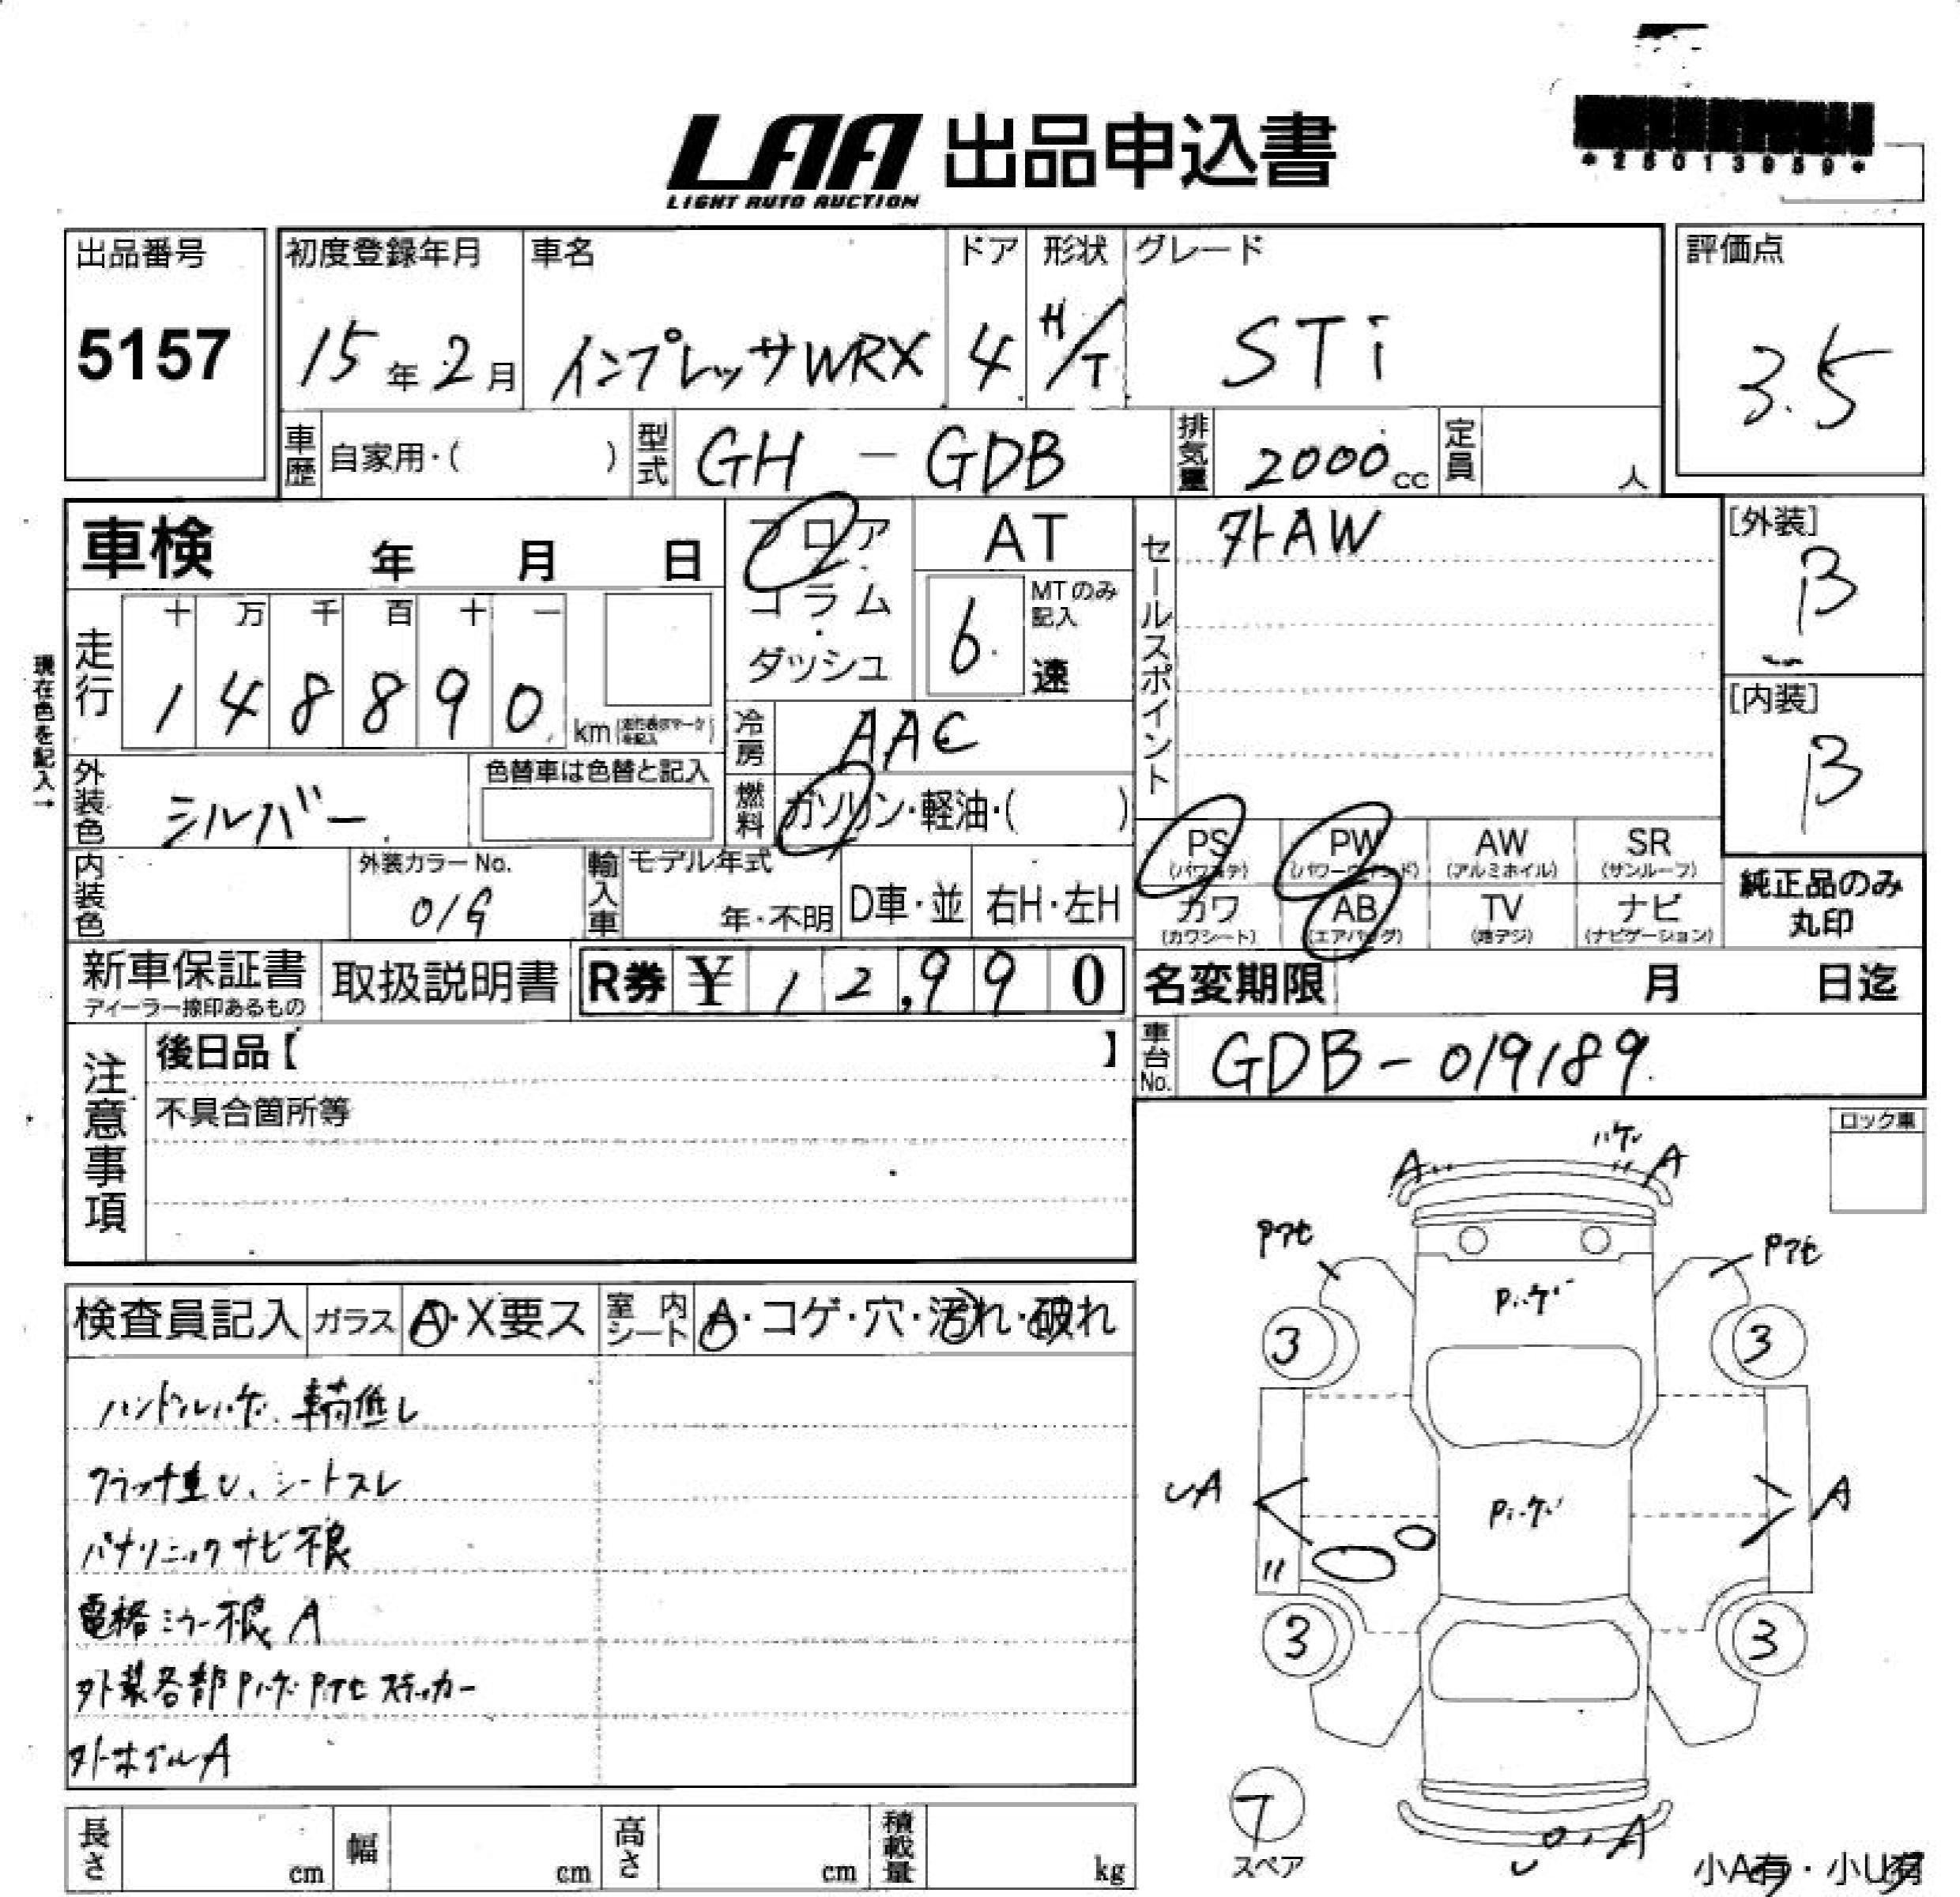 *26013959*
LAA 出品申込書
LIGHT AUTO AUCTION
出品番号
5157
初度登録年月
15年2月
車名
インプレッサWRX
ドア
4
形状
H/T
グレード
STi
評価点
3.5
車歴 自家用・( )
型式 GH-GDB
排気量 2000cc
定員 人
車検 年 月 日
フロア
コラム
・
ダッシュ
AT
6 MTのみ記入 速
セールスポイント 外AW
[外装]
B
[内装]
B
現在色を記入→
走行
十 万 千 百 十 一
1 4 8 8 9 0 km
冷房 AAC
外装色 シルバー
色替車は色替と記入
燃料 ガソリン・軽油・( )
PS (パワステ)
PW (パワーウインド)
AW (アルミホイル)
SR (サンルーフ)
カワ (カワシート)
AB (エアバッグ)
TV (地デジ)
ナビ (ナビゲーション)
純正品のみ
丸印
内装色
外装カラーNo.
01G
輸入車 モデル年式
年・不明
D車・並
右H・左H
新車保証書
ディーラー捺印あるもの
取扱説明書
R券 ¥12,990
名変期限 月 日迄
車台No. GDB-019189
注意事項
後日品【 】
不具合箇所等
ロック車
検査員記入
ガラス A・X要ス
室内シート A・コゲ・穴・汚れ・破れ
ハンドルハゲ、車高低し
クラッチ重い、シートスレ
パナソニックナビ不良
電格ミラー不良 A
外装各部Pハゲ Pアセ ステッカー
外ホイルA
A
ハゲ
A
Pアセ
Pアセ
Pハゲ
3
3
UA
Pハゲ
A
3
3
T
スペア
U・A
小A有・小U有
長さ cm
幅 cm
高さ cm
積載量 kg